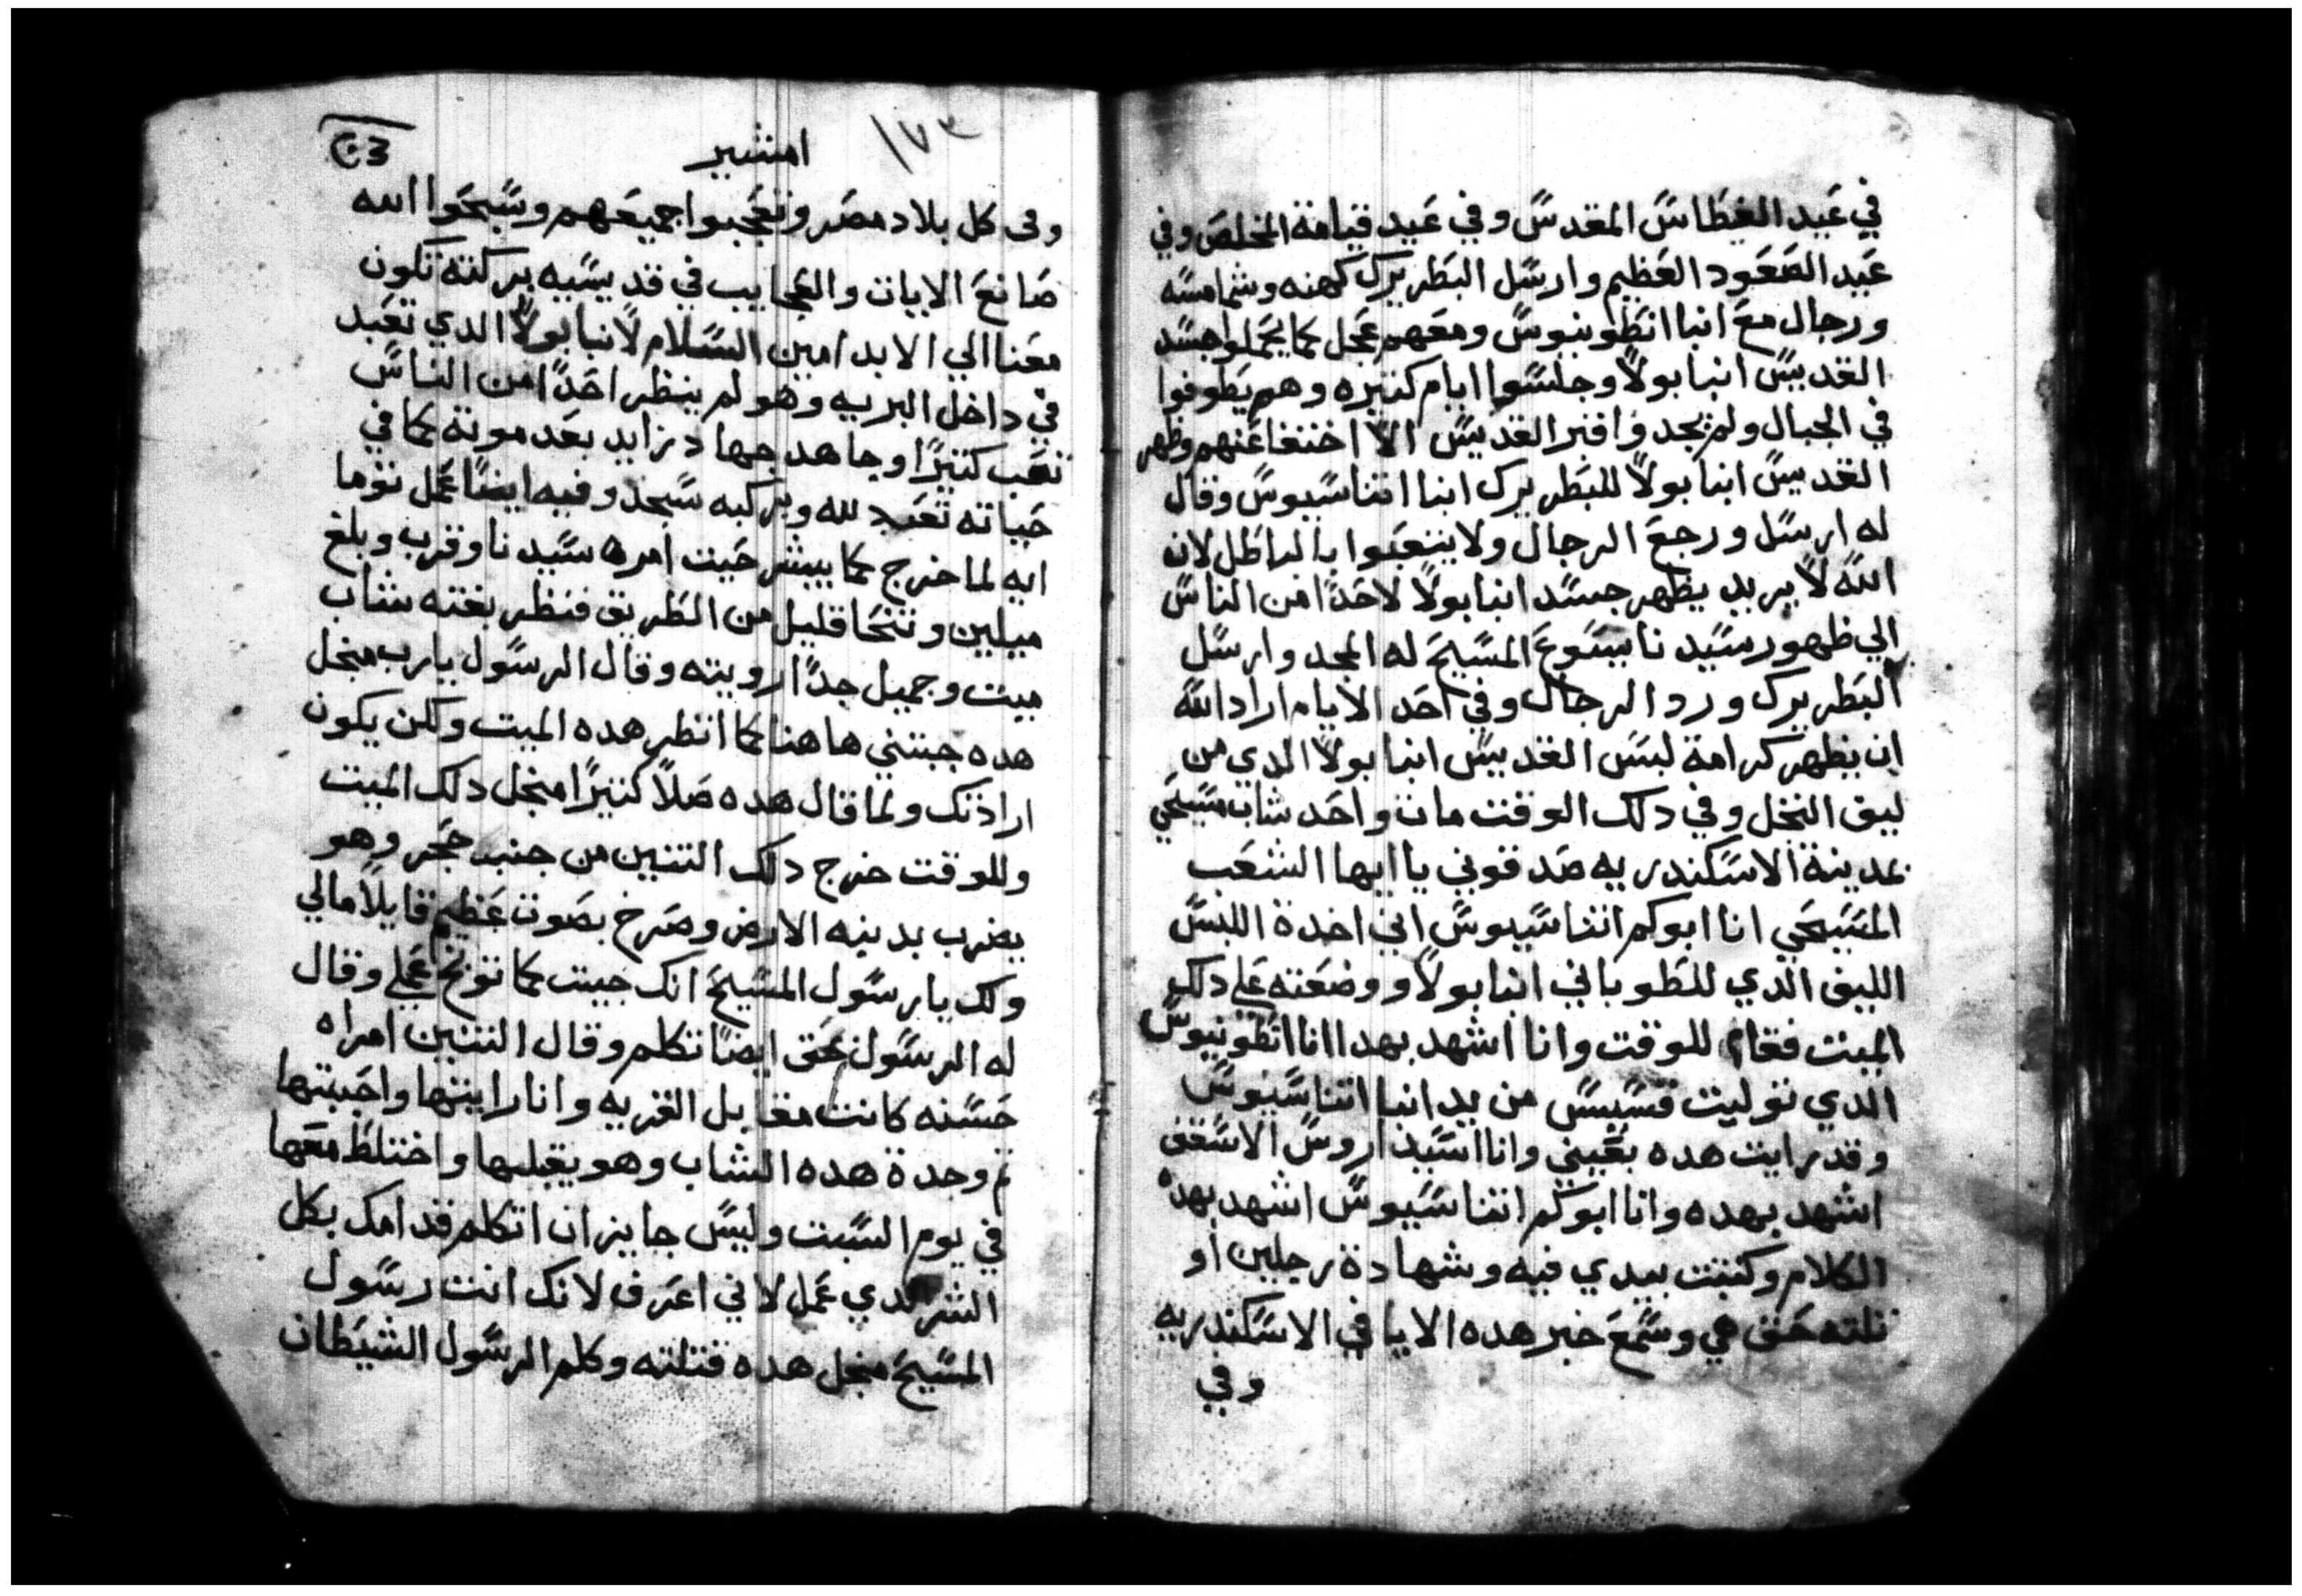 في عيد الغطاس المقدس وفي عيد قيامة المخلص وفي
عيد الصعود العظيم وارسل البطريرك كهنه وشمامسه
ورجال مع انبا انطونيوس ومعهم عجل كما يحملوا جسد
القديس انبا بولا وجلسوا ايام كتيره وهم يطوفوا
في الجبال ولم يجدوا قبر القديس الا اختفا عنهم وظهر
القديس انبا بولا للبطريرك انبا اتناسيوس وقال
له ارسل ورجع الرجال ولا يتعبوا بالباطل لان
الله لا يريد يظهر جسد انبا بولا لاحدا من الناس
الي ظهور سيدنا يسوع المسيح له المجد وارسل
البطريرك ورد الرجال وفي احد الايام اراد الله
ان يظهر كرامة لبس القديس انبا بولا الدي من
ليف النخل وفي دلك الوقت مات واحد شاب مسيحي
بمدينة الاسكندريه صدقوني يا ايها الشعب
المسيحي انا ابوكم اتناسيوس اني اخدة اللبس
الليف الدي للطوباني انبا بولا ووضعته علي دلك
الميت فقام للوقت وانا اشهد بهدا انا انطونيوس
الدي توليت قسيس من يد انبا اتناسيوس
وقد رايت هده بعيني وانا اسيداروس الاسقف
اشهد بهده وانا ابوكم اتناسيوس اشهد بهده
الكلام وكتبت بيدي فيه وشهادة رجلين او
تلته حق هي وسمع خبر هده الايا في الاسكندريه
وفي
١٧٣
امشير
وفى كل بلاد مصر وتعجبوا جميعهم وسبحوا الله
صانع الايات والعجايب في قديسيه بركته تكون
معنا الي الابد امين السلام لانبا بولا الدي تعبد
في داخل البريه وهو لم ينظر احدا من الناس
تعب كتيرا وجاهد جهاد زايد بعد موته كما في
حياته تعبد لله وبركبه سجد وفيه ايضا عمل توما
ايه لما خرج كما يبشر حيت امره سيدنا وقرب وبلغ
ميلين وتنحا قليل من الطريق فنظر بغته شاب
ميت وجميل جدا رويته وقال الرسول يا رب منجل
هده جبتني هاهنا كما انظر هده الميت ولكن يكون
ارادتك ولما قال هده صلا كتيرا منجل دلك الميت
وللوقت خرج دلك التنين من جنب حجر وهو
يضرب بدينه الارض وصرخ بصوت عظيم قايلا مالي
ولك يا رسول المسيح انك جيت كما توبخ عملي وقال
له الرسول بحق ايضا تكلم وقال التنين امراه
حسنه كانت مقابل القريه وانا رايتها واحببتها
تم وجدة هده الشاب وهو يقبلها واختلط معها
في يوم السبت وليس جايز ان اتكلم قدامك بكل
الشر الدي عمل لاني اعرف لانك انت رسول
المسيح منجل هده قتلته وكلم الرسول الشيطان